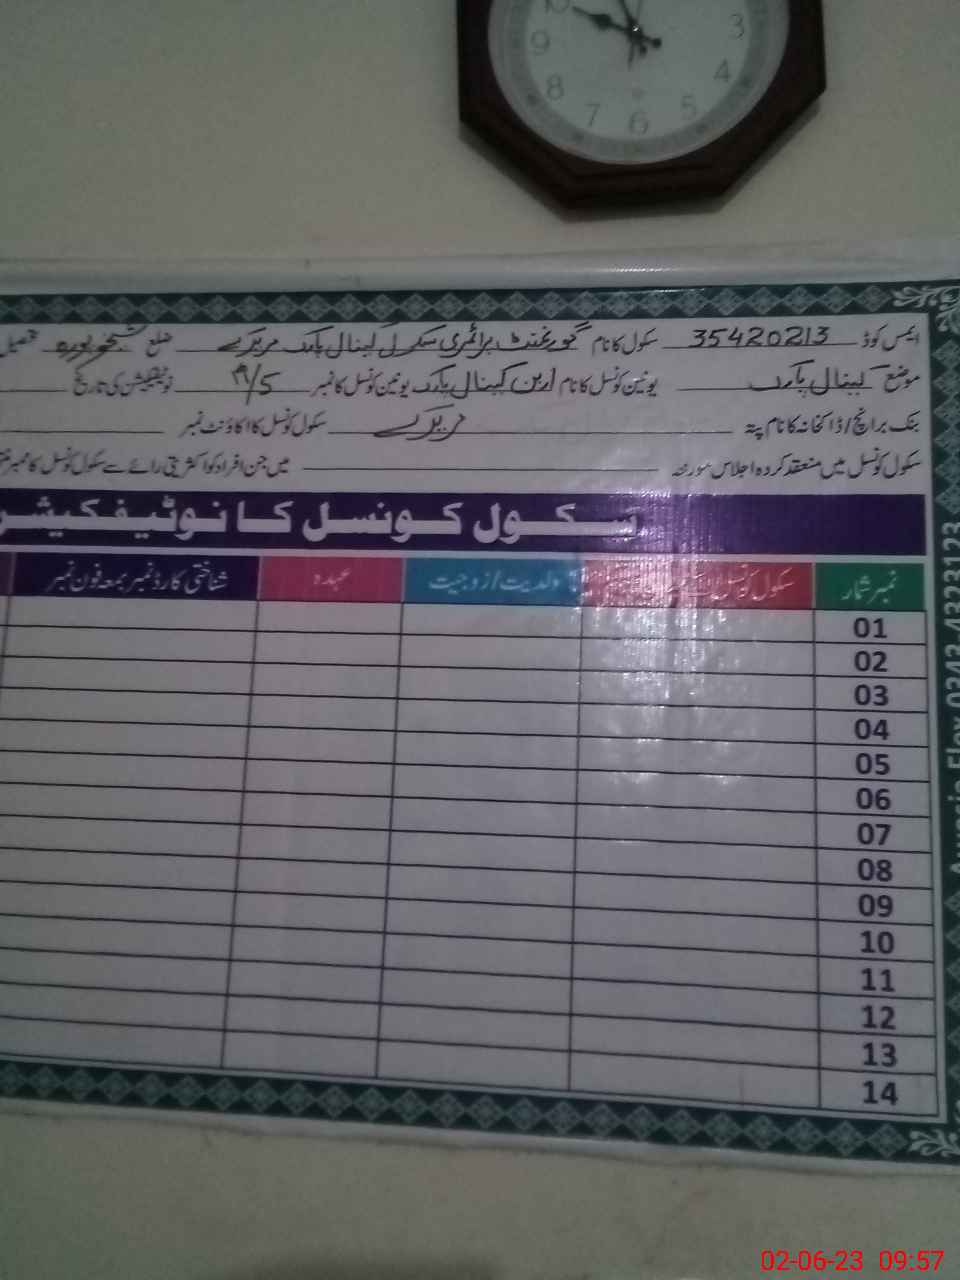 10
9
8
7
6
5
4
3
ایمس کوڈ 35420213 سکول کا نام گورنمنٹ پرائمری سکول کینال پارک مریدکے ضلع شیخوپورہ تحصیل
موضع کینال پارک یونین کونسل کا نام اربن کینال پارک یونین کونسل کا نمبر نوٹیفکیشن کی تاریخ
بنک برانچ/ڈاکخانہ کا نام پتہ مریدکے سکول کونسل کا اکاؤنٹ نمبر
سکول کونسل میں منعقد کردہ اجلاس مورخہ میں جن افراد کو اکثریتی رائے سے سکول کونسل کا ممبر
سکول کونسل کا نوٹیفکیشن
نمبر شمار سکول کونسل ولدیت/زوجیت عہدہ شناختی کارڈ نمبر بمعہ فون نمبر
01
02
03
04
05
06
07
08
09
10
11
12
13
14
Flex 0343-4323123
02-06-23 09:57